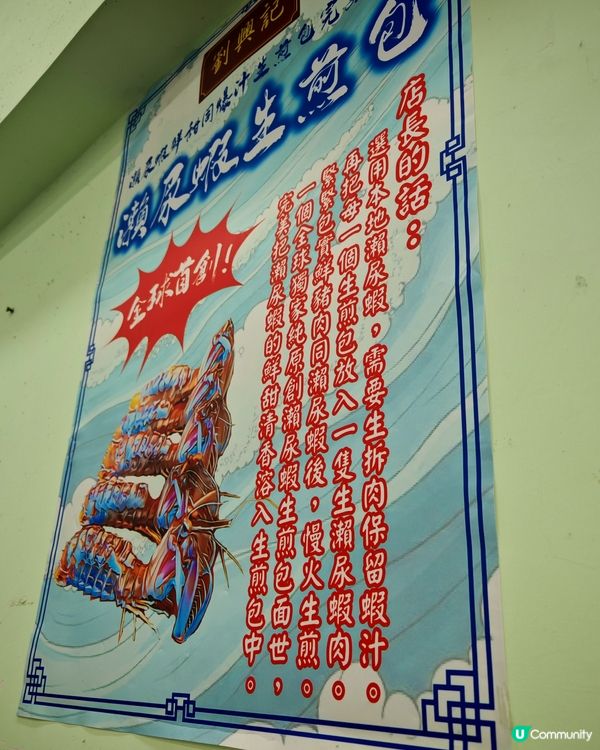 劉興記
瀨尿蝦鮮甜同爆汁生煎包完美
瀨尿蝦生煎包
全球首創!
店長的話：
選用本地瀨尿蝦，需要生拆肉保留蝦汁。
再把每一個生煎包放入一隻生瀨尿蝦肉。
緊緊包實鮮豬肉同瀨尿蝦後，慢火生煎。
一個全球獨家純原創瀨尿蝦生煎包面世，
完美把瀨尿蝦的鮮甜清香溶入生煎包中。
U Community